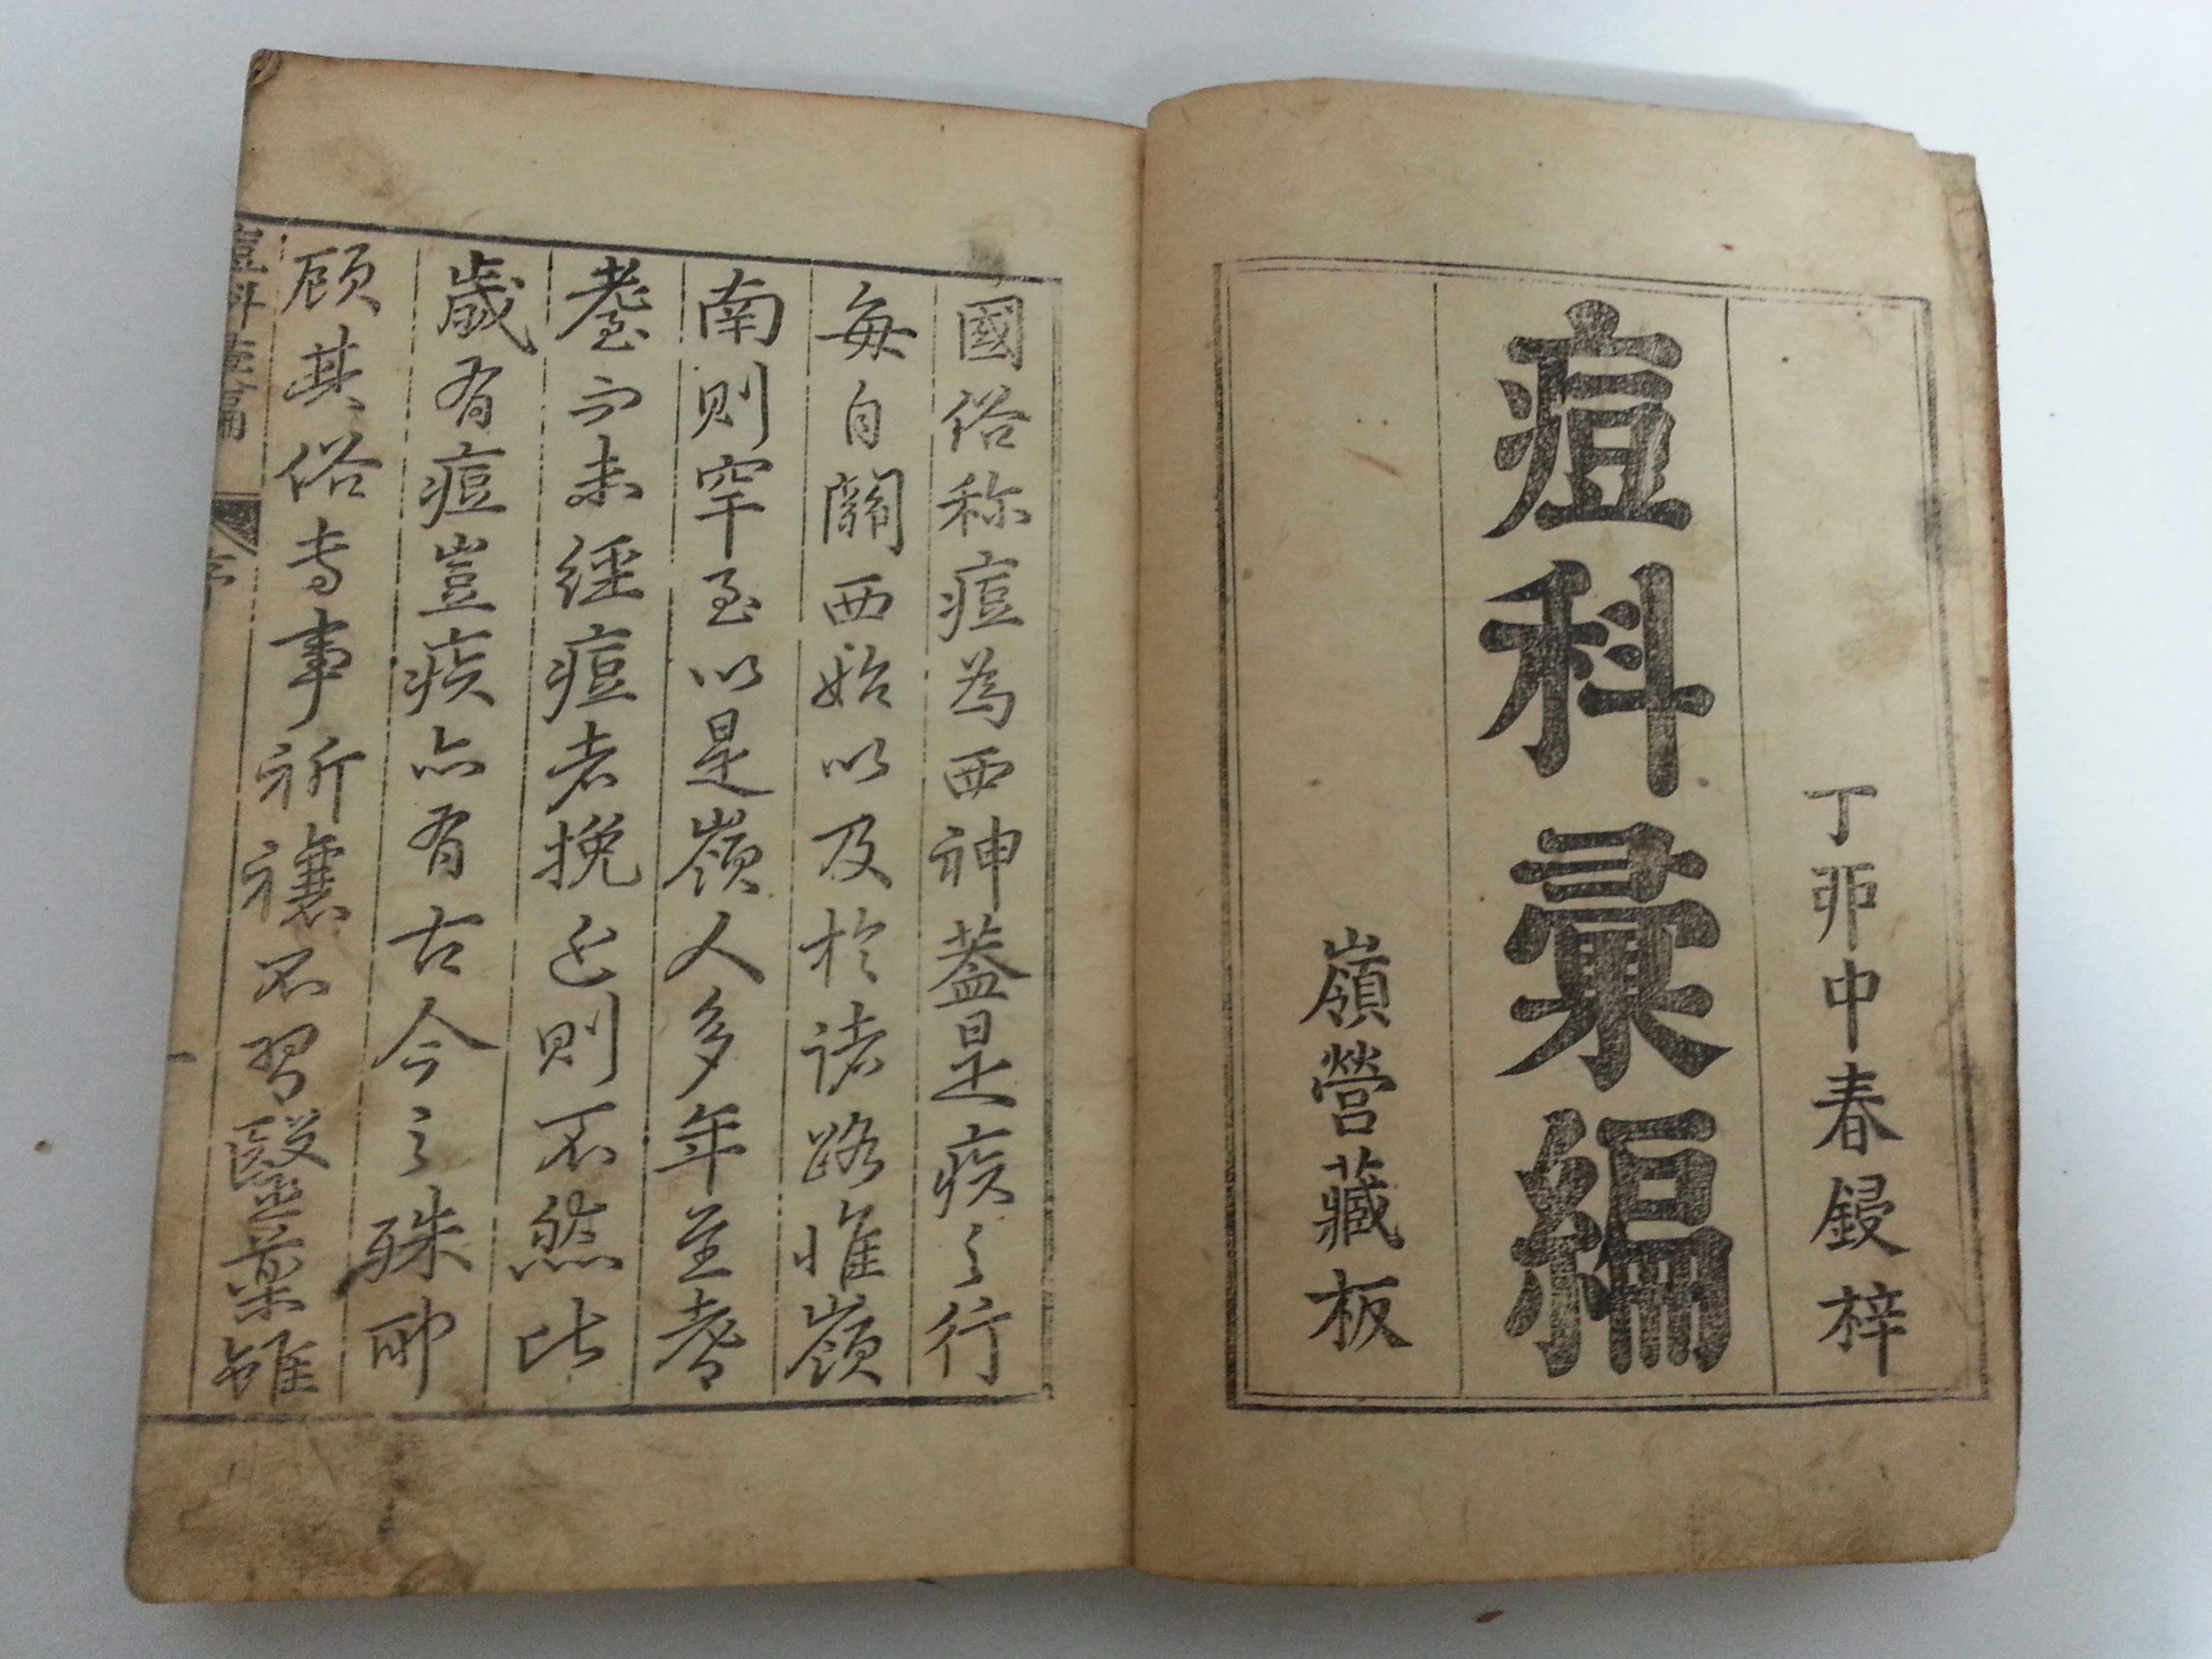 丁卯中春鋟梓
痘科彙編
嶺營藏板
國俗称痘為西神蓋是疾之行
每自關西始以及於諸路惟嶺
南則罕至以是嶺人多年至耆
耋而未經痘者挽近則不然比
歲有痘豈疾亦有古今之殊耶
顧其俗专事祈禳不習醫藥雖
痘科彙編
序
一